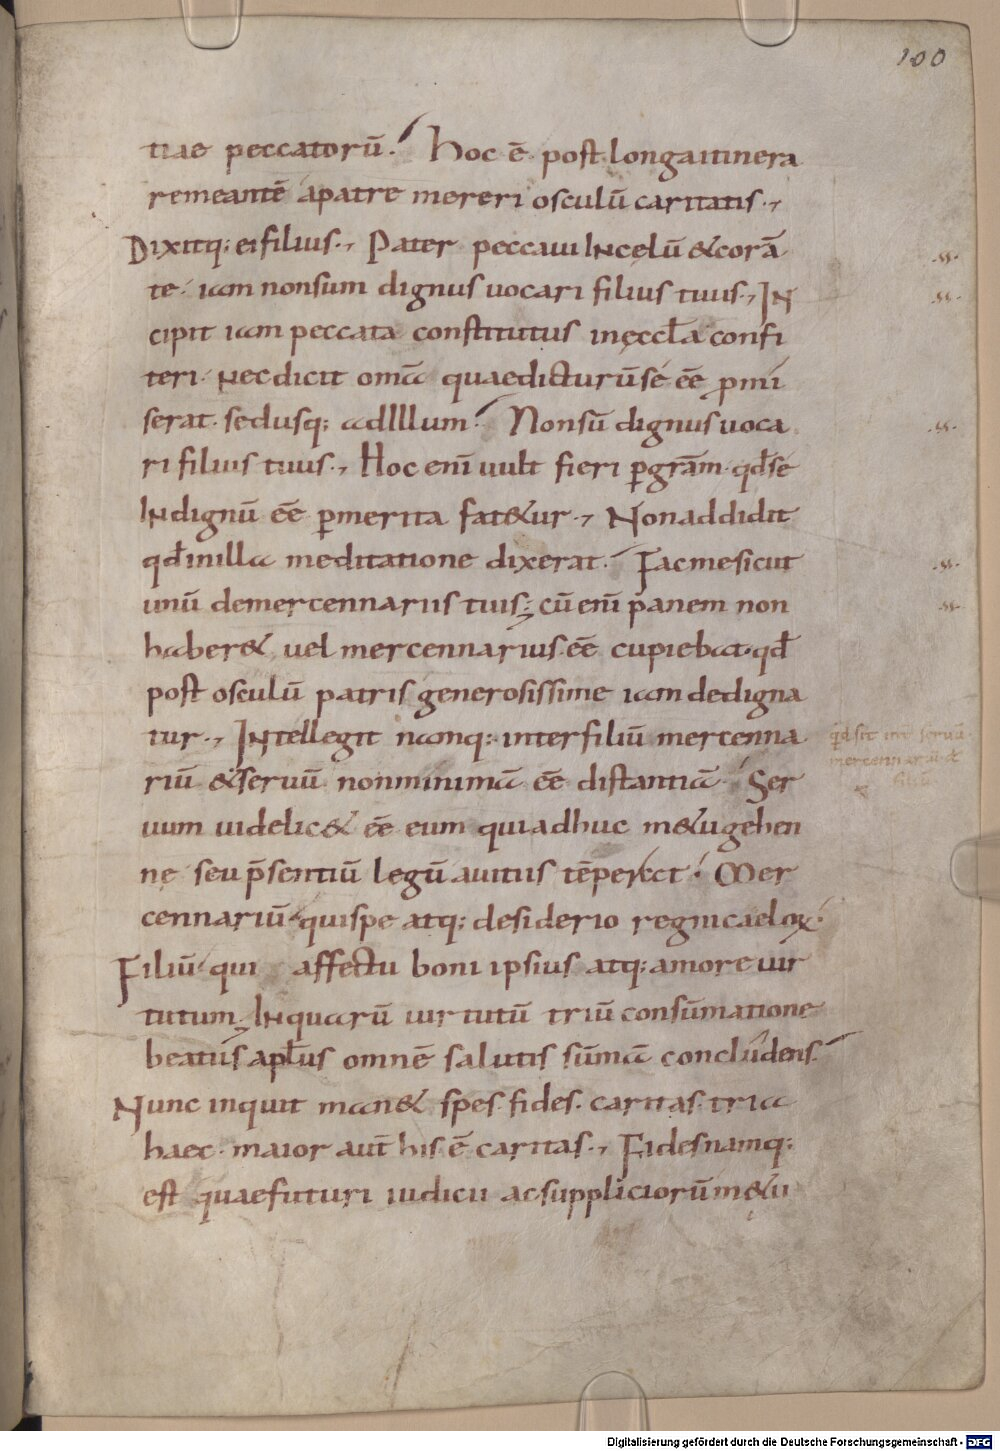 100
tiae peccatorū. Hoc ē post longa itinera
remeantē a patre mereri osculū caritatis.,
Dixitq; ei filius., Pater peccavi IN celū & corā
te. iam non sum dignus vocari filius tuus., IN
cipit iam peccata constitutus in ęccl̄a confi
teri. Nec dicit omīa quae dicturū sē eē ꝓmi
serat. sed usq; ad Illum. Non sū dignus uoca
ri filius tuus., Hoc enī uult fieri ꝑ gr̄am. qđ se
INdignū eē ꝑ merita fat&ur., Non addidit
qđ in illa meditatione dixerat. Fac me sicut
unū de mercennariis tuis; cū enī panem non
haber& uel mercennarius eē cupiebat. qđ
post osculū patris generosissime iam dedigna
tur., INtellegit namq; inter filiū mercenna
riū & seruū non minimā eē distantiā. Ser
uum uidelic& eē eum qui adhuc m&u gehen
ne seu p̄sentiū legū auitiis tēperat. Mer
cennariū quispe atq; desiderio regni caeloꝝ.
Filiū qui affectu boni ipsius atq; amore uir
tutum. IN quarū uirtutū triū consūmatione
beatus apl̄us omnē salutis sūmā concludens.
Nunc inquit man& spes. fides. caritas. tria
haec. maior aut̄ his ē caritas., Fides namq;
est quae futuri iudicii ac suppliciorū m&u
qđ sit int̄ seruū
mercennariū &
filiū
Digitalisierung gefördert durch die Deutsche Forschungsgemeinschaft - DFG